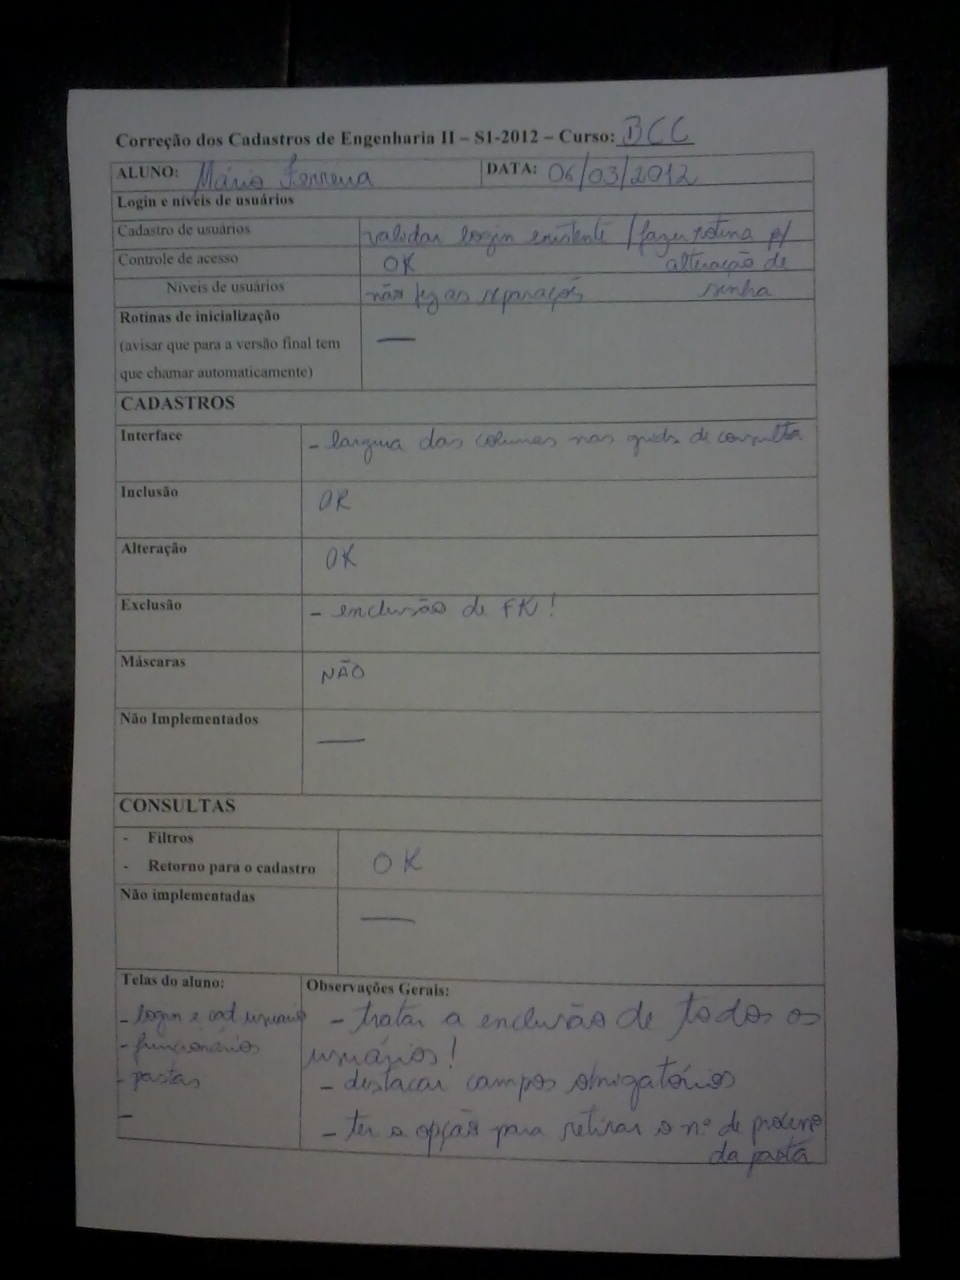 Correção dos Cadastros de Engenharia II – S1-2012 – Curso: BCC
ALUNO: Mário Ferreira DATA: 06/03/2012
Login e níveis de usuários
Cadastro de usuários validar login existente / fazer rotina p/
Controle de acesso OK alteração de
Níveis de usuários não fez as separações senha
Rotinas de inicialização —
(avisar que para a versão final tem
que chamar automaticamente)
CADASTROS
Interface - largura das colunas nas grids de consulta
Inclusão OK
Alteração OK
Exclusão - exclusão de FK!
Máscaras NÃO
Não Implementados —
CONSULTAS
- Filtros
- Retorno para o cadastro OK
Não implementadas —
Telas do aluno: Observações Gerais:
- login e cad usuario - tratar a exclusão de todos os
- funcionários usuários!
- pastas - destacar campos obrigatórios
- - ter a opção para retirar o nº de processo
da pasta